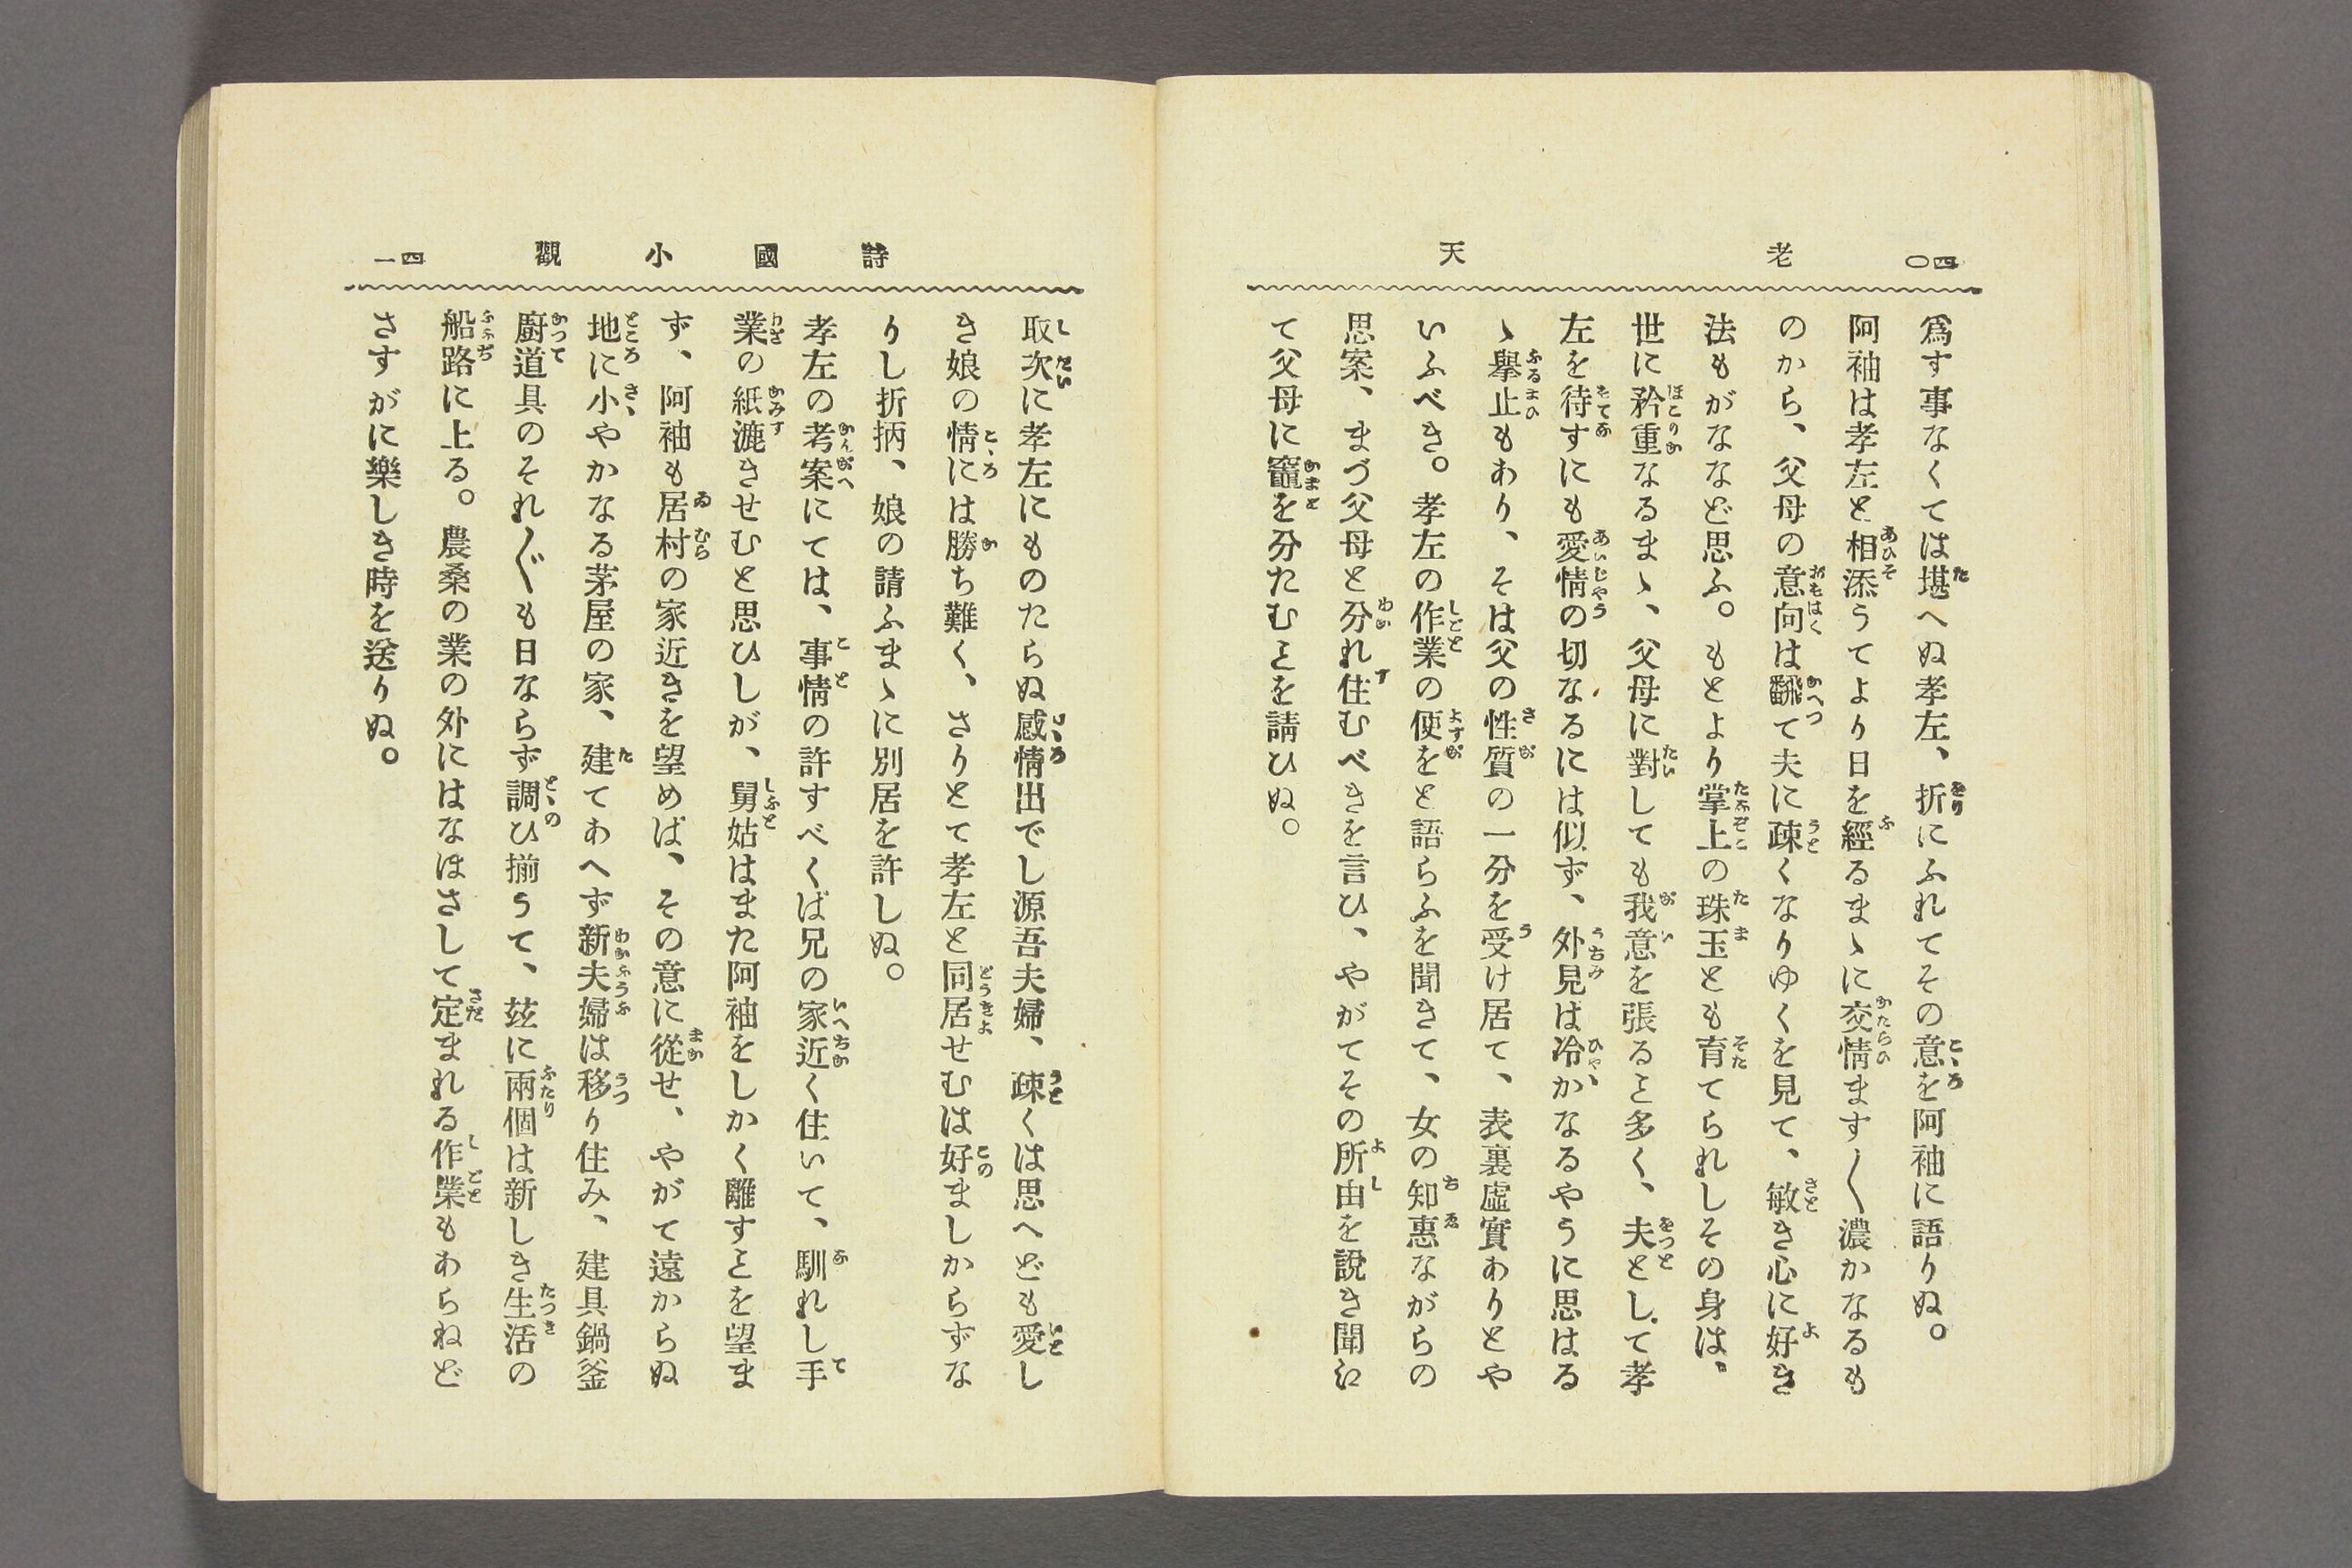 四〇　老　天
爲す事なくては堪へぬ孝左、折にふれてその意を阿袖に語りぬ。
阿袖は孝左と相添うてより日を經るまゝに交情ます〳〵濃かなるも
のから、父母の意向は飜て夫に疎くなりゆくを見て、敏き心に好き
法もがななど思ふ。もとより掌上の珠玉とも育てられしその身は、
世に矜重なるまゝ、父母に對しても我意を張るヿ多く、夫として孝
左を待すにも愛情の切なるには似ず、外見は冷かなるやうに思はる
ゝ擧止もあり、そは父の性質の一分を受け居て、表裏虛實ありとや
いふべき。孝左の作業の便をと語らふを聞きて、女の知惠ながらの
思案、まづ父母と分れ住むべきを言ひ、やがてその所由を說き聞え
て父母に竈を分たむヿを請ひぬ。
詩國小觀　四一
取次に孝左にものたらぬ感情出でし源吾夫婦、疎くは思へども愛し
き娘の情には勝ち難く、さりとて孝左と同居せむは好ましからずな
りし折柄、娘の請ふまゝに別居を許しぬ。
孝左の考案にては、事情の許すべくば兄の家近く住いて、馴れし手
業の紙漉きせむと思ひしが、舅姑はまた阿袖をしかく離すヿを望ま
ず、阿袖も居村の家近きを望めば、その意に從せ、やがて遠からぬ
地に小やかなる茅屋の家、建てあへず新夫婦は移り住み、建具鍋釜
廚道具のそれ〴〵も日ならず調ひ揃うて、玆に兩個は新しき生活の
船路に上る。農桑の業の外にはなほさして定まれる作業もあらねど
さすがに樂しき時を送りぬ。